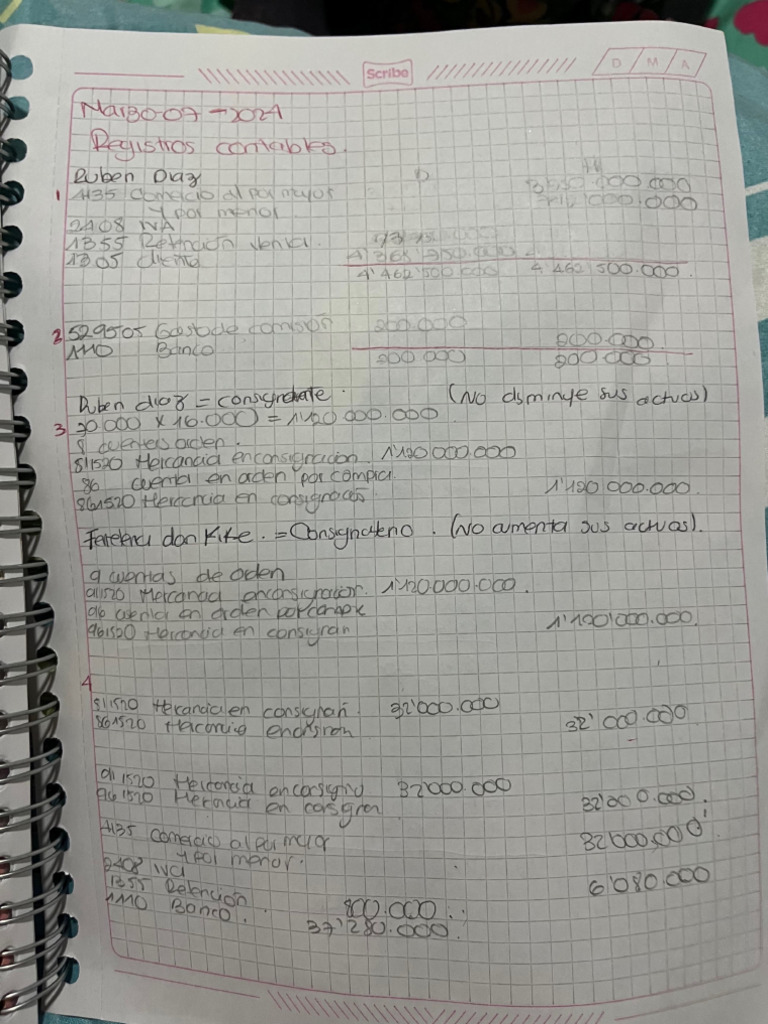 Scribe
D M A
Marzo 07 - 2024
Registros contables.
Ruben Diaz
D H
1 4135 Comercio al por mayor 000.000
y por menor 000.000
2408 IVA
1355 Retención venta.
1305 cliente
4'462'500.000 4'462'500.000
2 529505 Gasto de comisión 900.000
1110 Banco 900.000
900.000 900.000
Ruben dioz = consignante. (No disminuye sus activos)
3 70.000 x 16.000 = 1'120 000.000
8 cuentas orden.
811520 Mercancia en consignacion. 1'120 000.000
86 cuenta en orden por contra
861520 Mercancia en consignación 1'120 000.000.
Ferreteria don Kike. = Consignatario. (No aumenta sus activos).
9 cuentas de orden
911520 Mercancia en consignacion. 1'120.000.000.
96 cuenta en orden por contra
961520 Mercancia en consignan 1'120'000.000.
4
811520 Mercancia en consignan 32'000.000
861520 32'000.000
911520 Mercancia en consigna 32000.000
961520 Mercancia en consignan 32'000.000.
4135 Comercio al por mayor 32000,000
y por menor.
2408 IVA 6'080.000
1355 Retención. 800.000..
1110 Banco. 37'280.000.